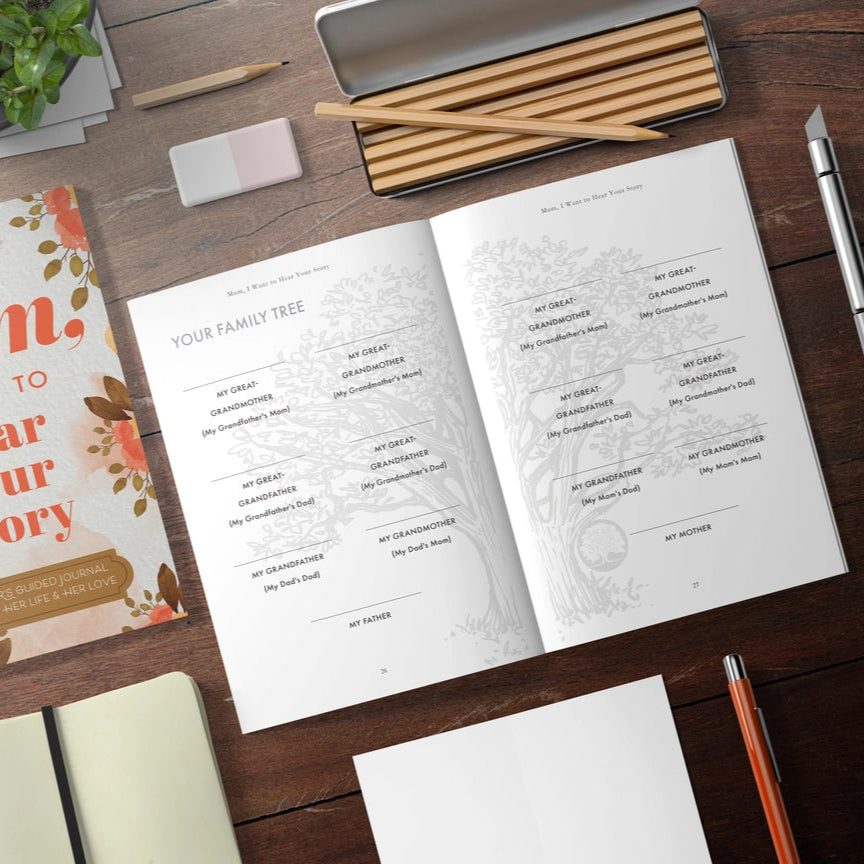 m,
TO
ar
ur
ory
R'S GUIDED JOURNAL
HER LIFE & HER LOVE
Mom, I Want to Hear Your Story
YOUR FAMILY TREE
MY GREAT-
GRANDMOTHER
(My Grandfather's Mom)
MY GREAT-
GRANDMOTHER
(My Grandmother's Mom)
MY GREAT-
GRANDFATHER
(My Grandfather's Dad)
MY GREAT-
GRANDFATHER
(My Grandmother's Dad)
MY GRANDFATHER
(My Dad's Dad)
MY GRANDMOTHER
(My Dad's Mom)
MY FATHER
26
Mom, I Want to Hear Your Story
MY GREAT-
GRANDMOTHER
(My Grandfather's Mom)
MY GREAT-
GRANDMOTHER
(My Grandmother's Mom)
MY GREAT-
GRANDFATHER
(My Grandfather's Dad)
MY GREAT-
GRANDFATHER
(My Grandmother's Dad)
MY GRANDFATHER
(My Mom's Dad)
MY GRANDMOTHER
(My Mom's Mom)
MY MOTHER
27